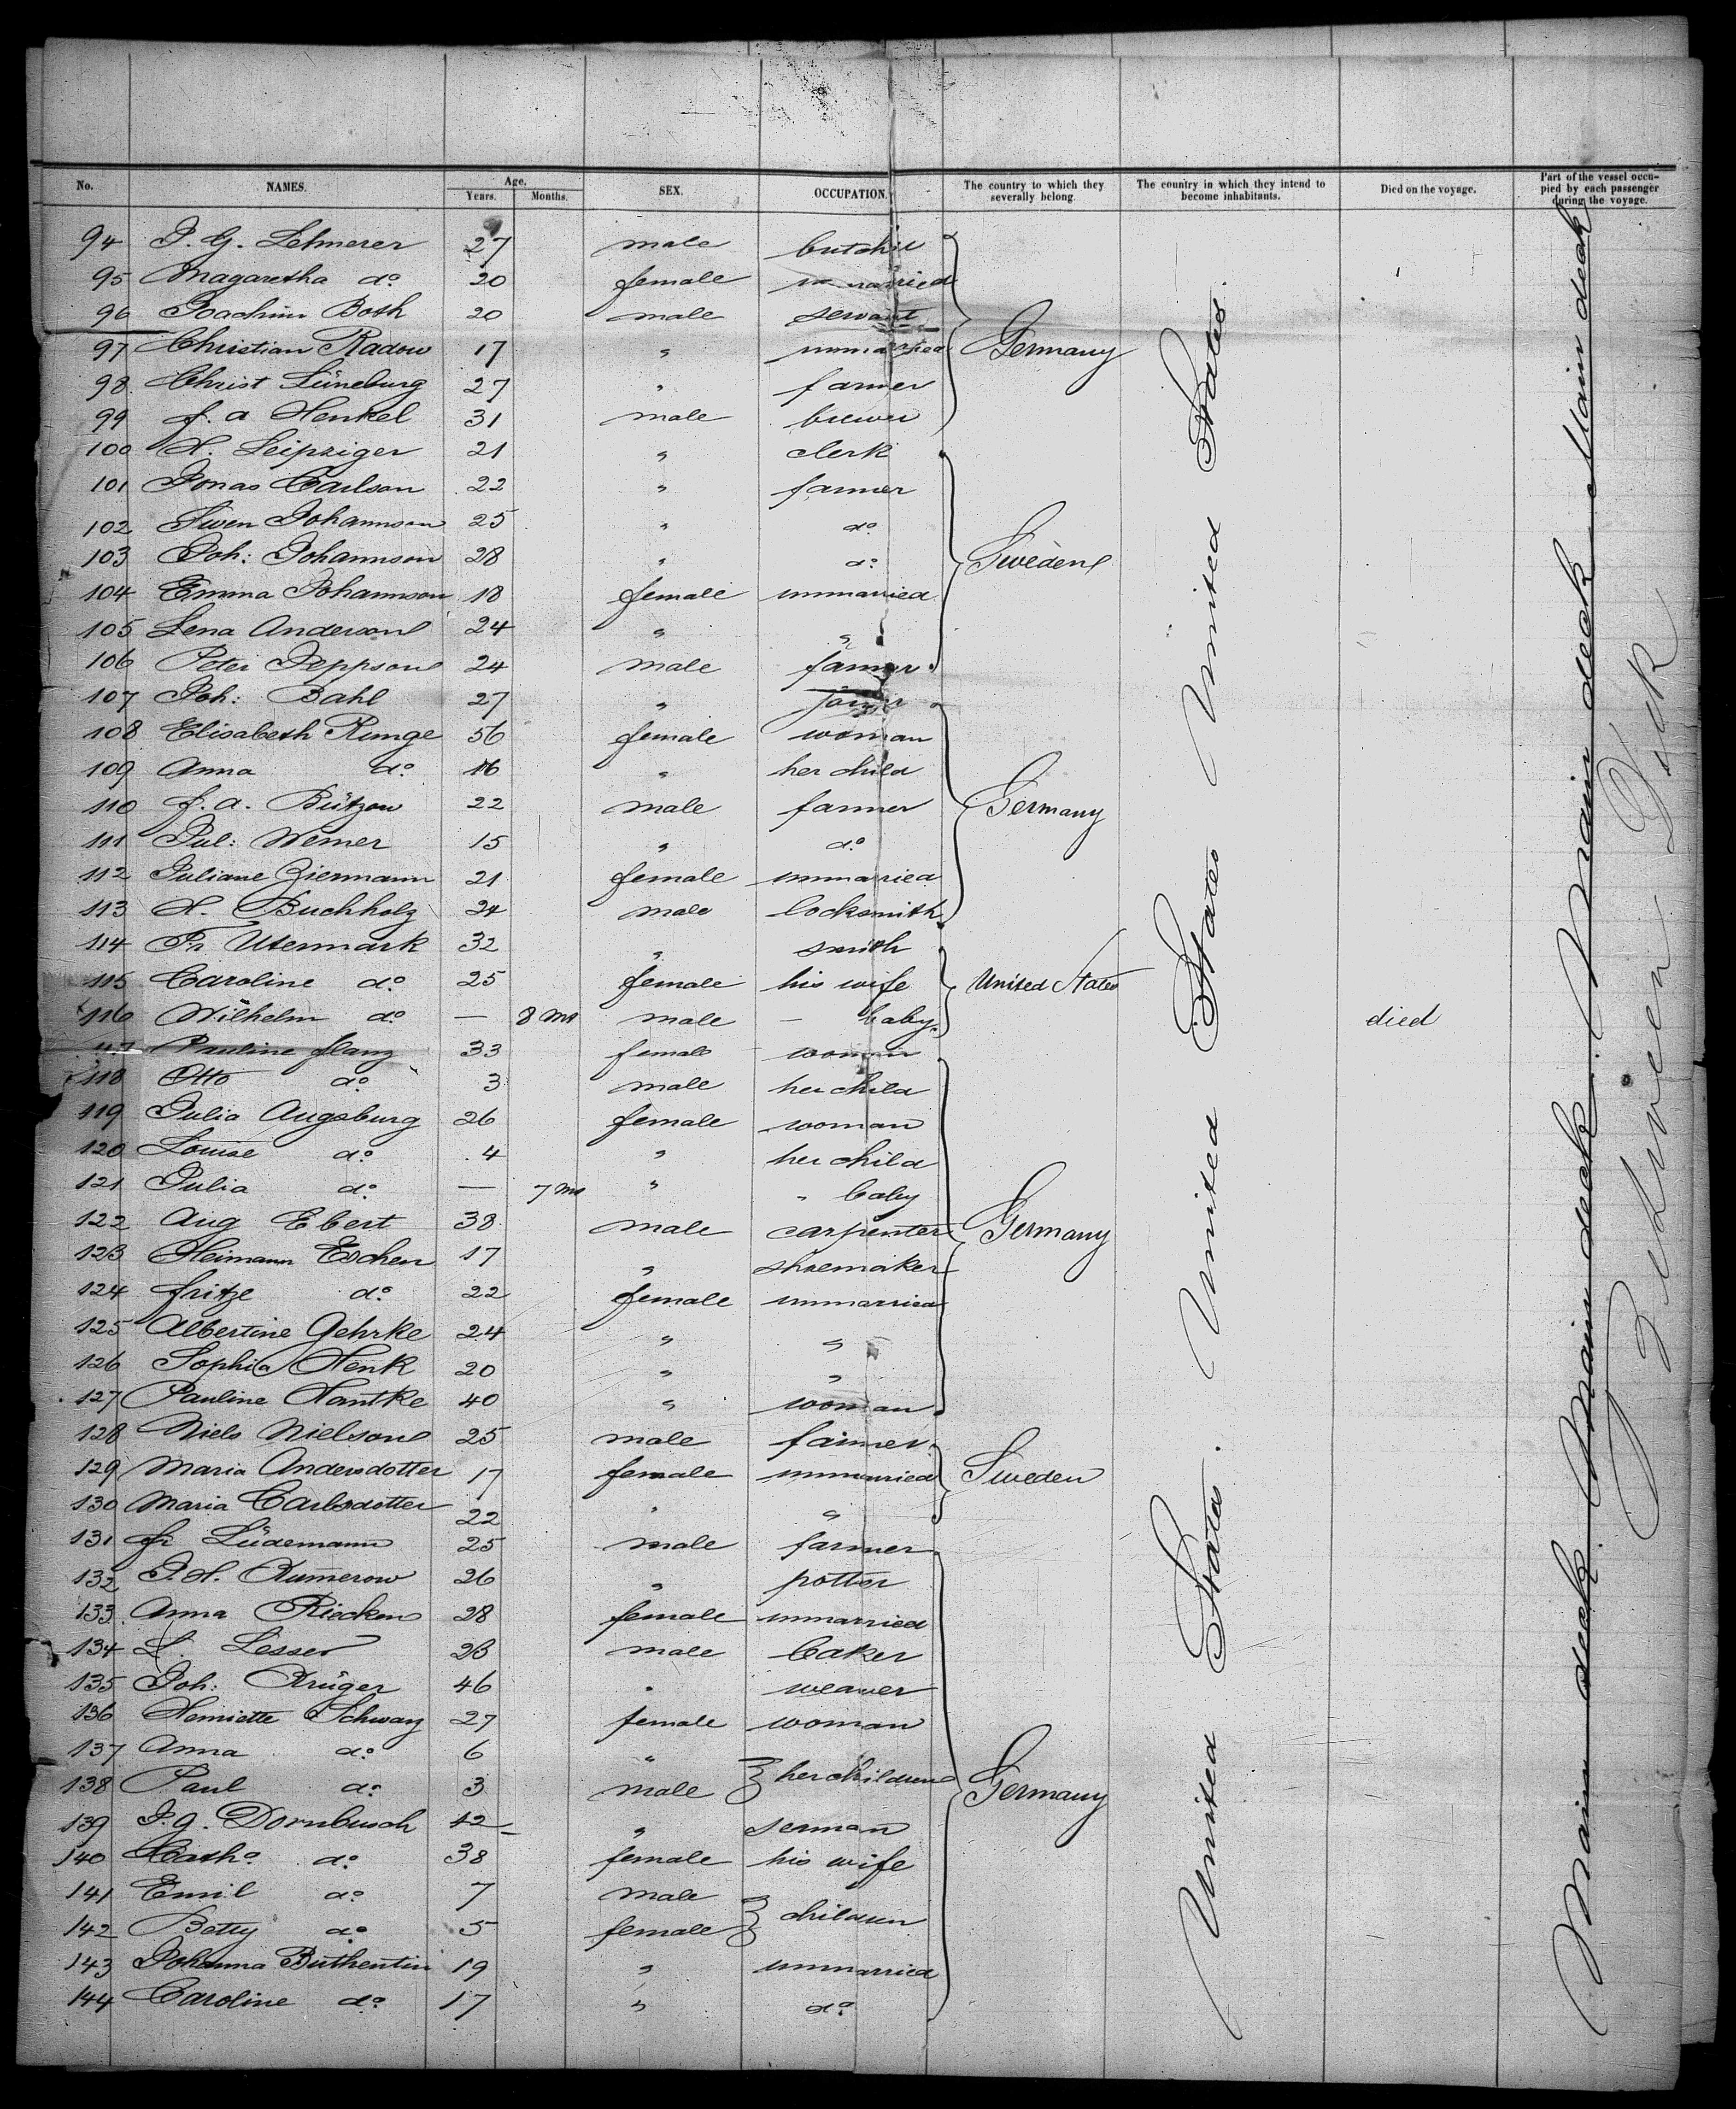 No. NAMES. Age. Years. Months. SEX. OCCUPATION. The country to which they severally belong. The country in which they intend to become inhabitants. Died on the voyage. Part of the vessel occupied by each passenger during the voyage.
94 J. G. Lehmerer 27 male butcher
95 Magaretha do 20 female unmarried
96 Joachim Both 20 male servant
97 Christian Radow 17 " unmarried Germany
98 Christ Lüneburg 27 " farmer
99 f. a Henkel 31 male brewer
100 H. Leipziger 21 " clerk
101 Jonas Carlson 22 " farmer
102 Swen Johannson 25 " do
103 Joh: Johannson 28 " do Sweden
104 Emma Johannson 18 female unmarried
105 Lena Anderson 24 " "
106 Peter Jeppson 24 male farmer
107 Joh: Bahl 27 "
108 Elisabeth Runge 56 female woman
109 Anna do 16 " her child
110 f. a. Bützow 22 male farmer Germany
111 Jul: Werner 15 " do
112 Juliane Ziermann 21 female unmarried
113 H. Buchholz 24 male locksmith
114 Fr Utermark 32 " smith
115 Caroline do 25 female his wife United States
116 Wilhelm do — 8 Ms male — baby died
117 Pauline flanz 33 female woman
118 Otto do 3 male her child
119 Julia Augsburg 26 female woman
120 Louise do 4 " her child
121 Julia do — 7 Ms " " baby
122 Aug Ebert 38 male carpenter Germany
123 Heimann Eschen 17 " shoemaker
124 fritze do 22 female unmarried
125 Albertine Gehrke 24 " "
126 Sophia Henk 20 " "
127 Pauline Hantke 40 " woman
128 Niels Nielson 25 male farmer
129 Maria Andersdotter 17 female unmarried Sweden
130 Maria Carlsdotter 22 " "
131 fr Lüdemann 25 male farmer
132 J. H. Rumerow 26 " potter
133 Anna Riecken 28 female unmarried
134 L. Lesser 23 male baker
135 Joh: Krüger 46 " weaver
136 Henriette Schwarz 27 female woman
137 Anna do 6 " her children
138 Paul do 3 male Germany
139 J. g. Dornbusch 42 " serman
140 Cath a do 38 female his wife
141 Emil do 7 male children
142 Betty do 5 female
143 Johanna Buthentin 19 " unmarried
144 Caroline do 17 " do
United States. United States United States. United States
Main deck Main deck Main deck Main deck Main deck
Between Dek